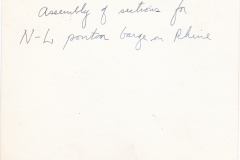 Assembly of sections for
N-L ponton barge on Rhine